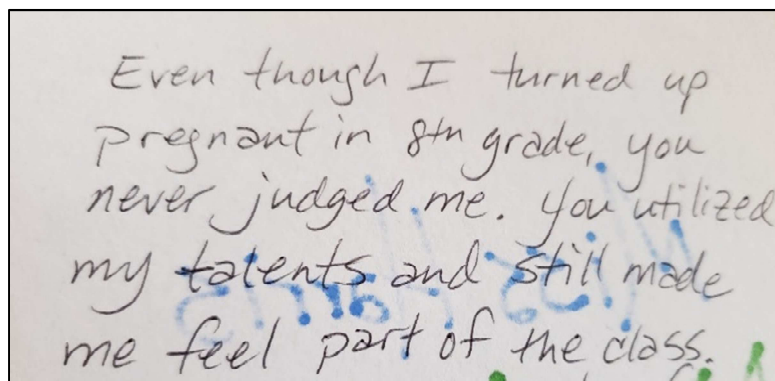 Even though I turned up
pregnant in 8th grade, you
never judged me. You utilized
my talents and still made
me feel part of the class.